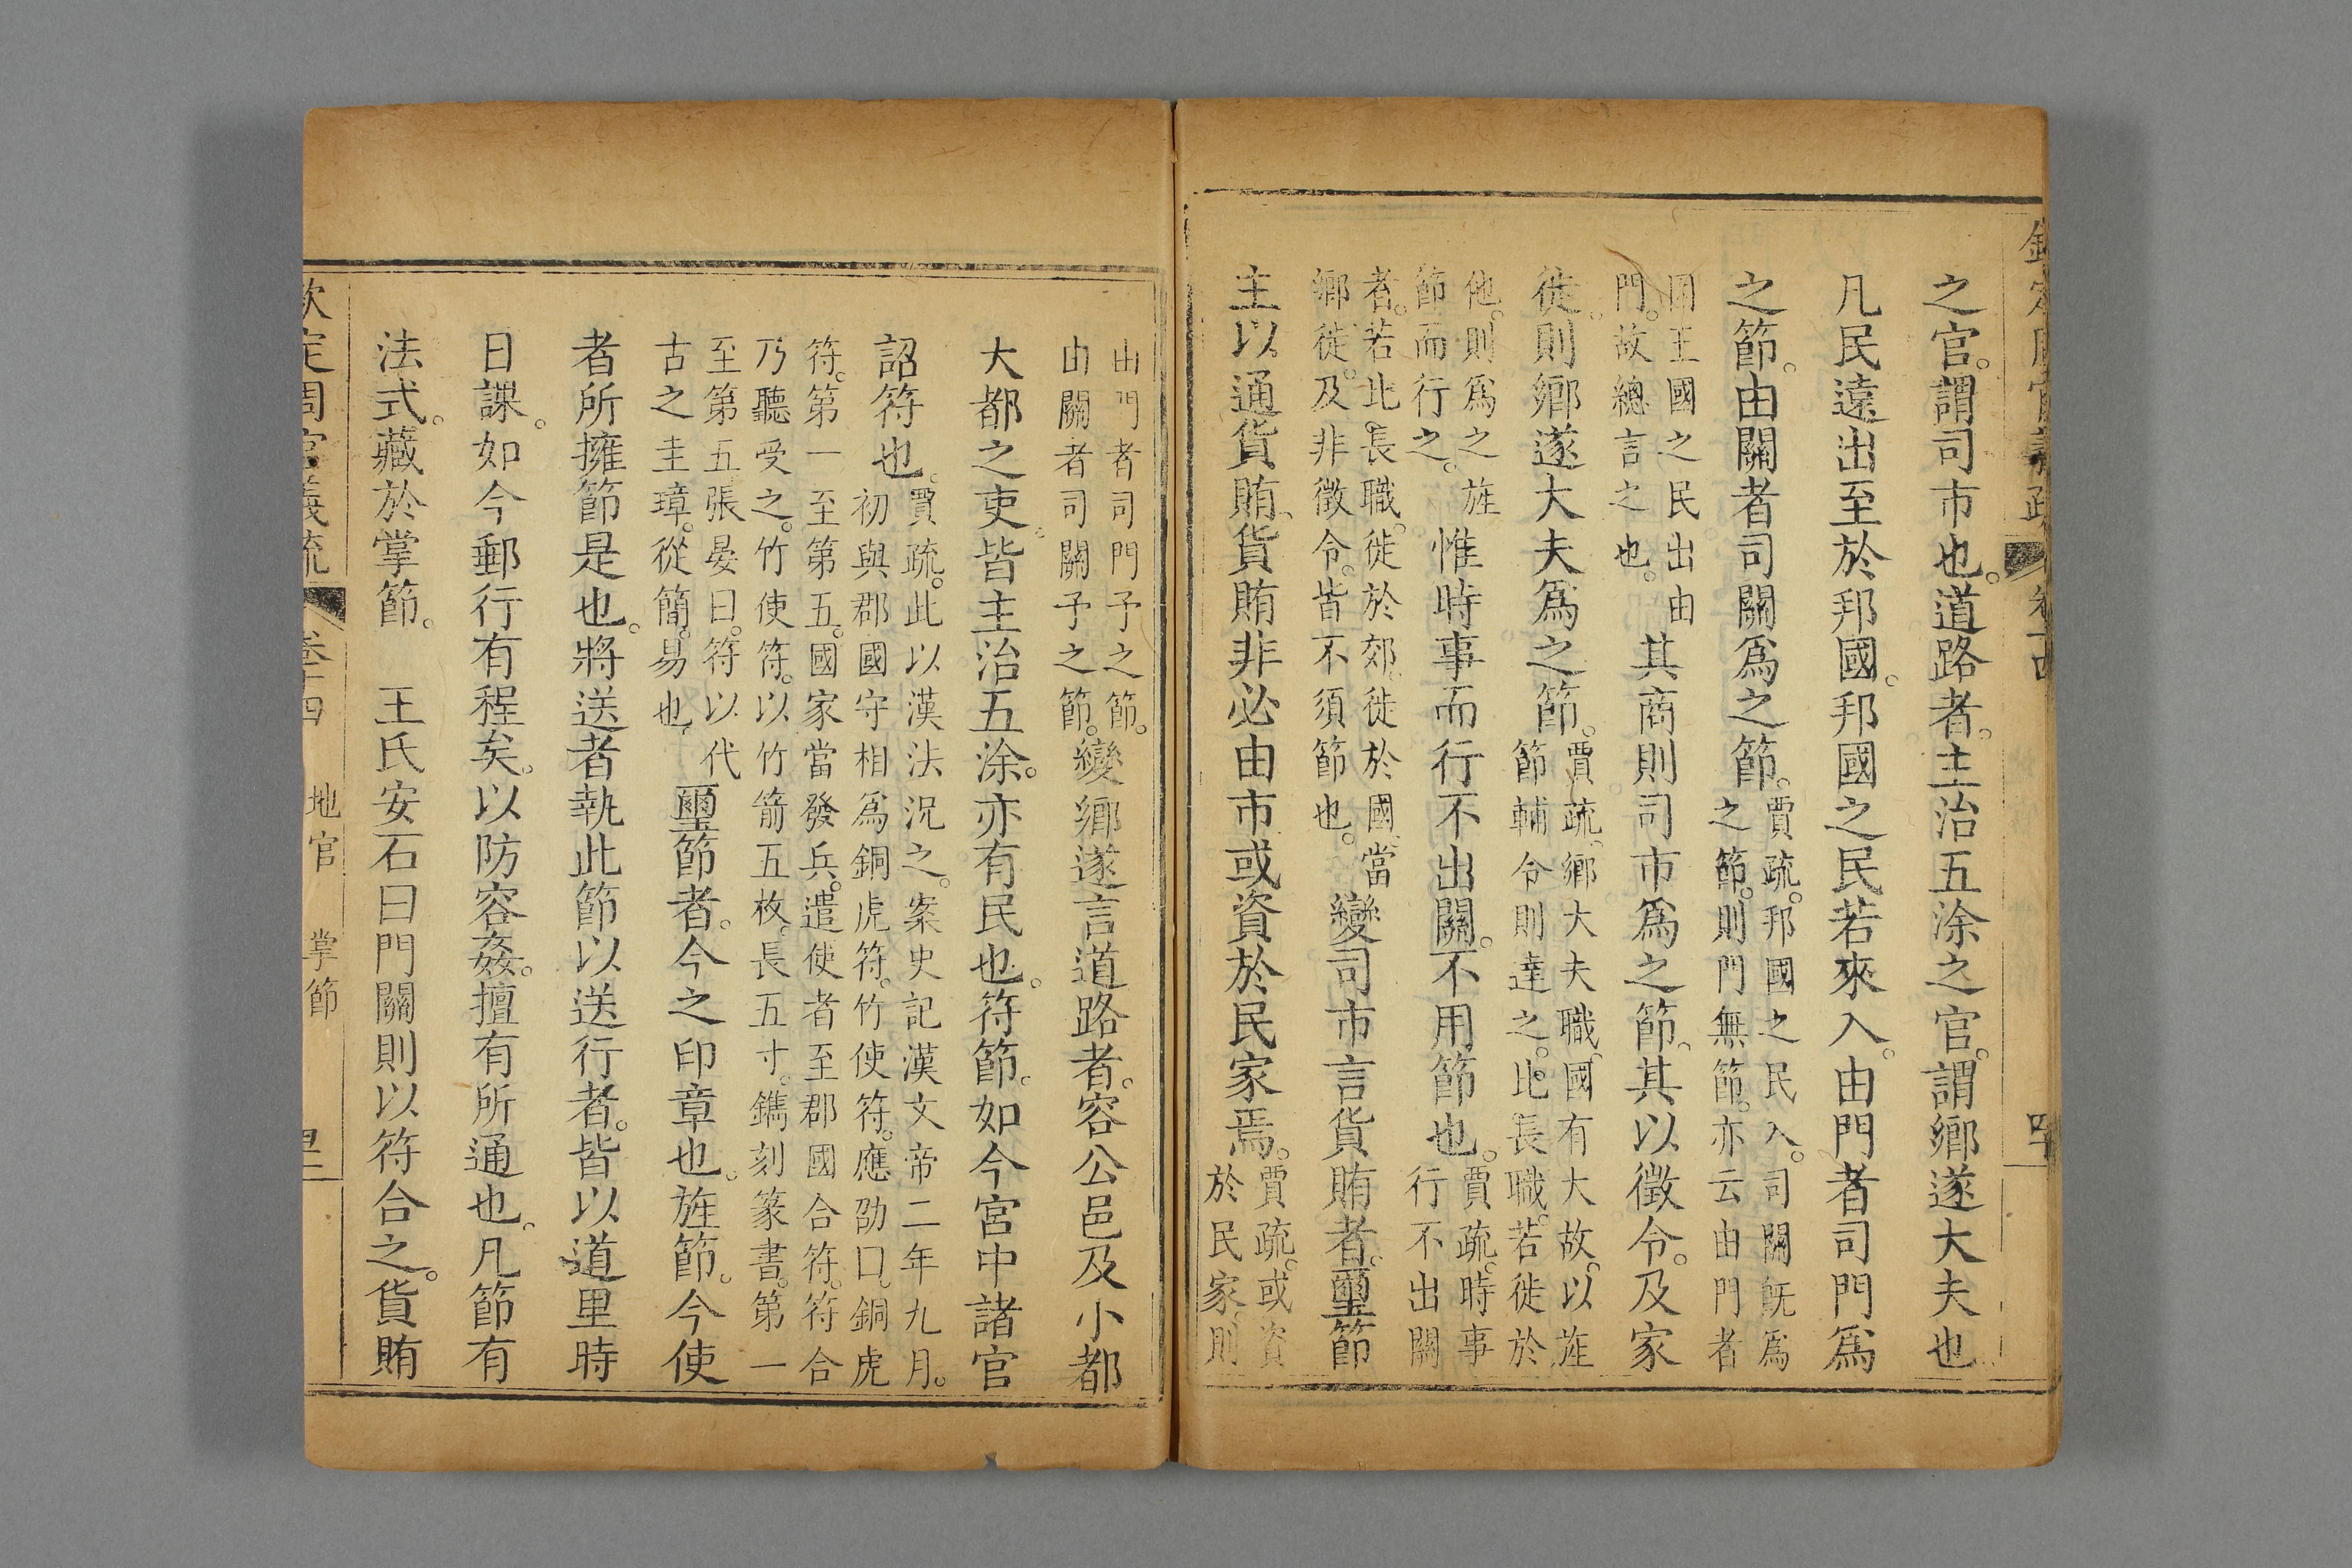 之官。謂司市也。道路者。主治五涂之官。謂鄉遂大夫也
凡民遠出至於邦國。邦國之民若來入。由門者司門爲
之節。由關者司關爲之節。賈疏。邦國之民入。司關旣爲
之節。則門無節。亦云由門者
因王國之民出由
門。故總言之也。其商則司市爲之節、其以徵令。及家
徙。則鄉遂大夫爲之節。賈疏、鄉大夫職、國有大故。以旌
節輔令則達之。比長職。若徙於
他。則爲之旌
節而行之。惟時事而行不出關。不用節也。賈疏。時事
行不出關
者。若比長職。徙於郊。徙於國、當
鄉徙。及非徵令。皆不須節也。變司市言貨賄者。璽節
主以通貨賄、貨賄非必由市或資於民家焉。賈疏。或資
於民家。則
由門者司門予之節。
由關者司關予之節。變鄉遂言道路者。容公邑及小都
大都之吏。皆主治五涂。亦有民也。符節。如今宮中諸官
詔符也。賈疏。此以漢法況之。案史記漢文帝二年九月。
初與郡國守相爲銅虎符。竹使符。應劭曰。銅虎
符。第一至第五。國家當發兵。遣使者至郡國合符。符合
乃聽受之。竹使符。以竹箭五枚。長五寸。鐫刻篆書。第一
至第五張晏曰。符以代
古之圭璋。從簡。易也。璽節者。今之印章也。旌節。今使
者所擁節是也。將送者執此節以送行者。皆以道里時
日課。如今郵行有程矣。以防容姦。擅有所通也。凡節有
法式。藏於掌節。 王氏安石曰門關則以符合之。貨賄
欽定周官義疏 卷十四 地官 掌節